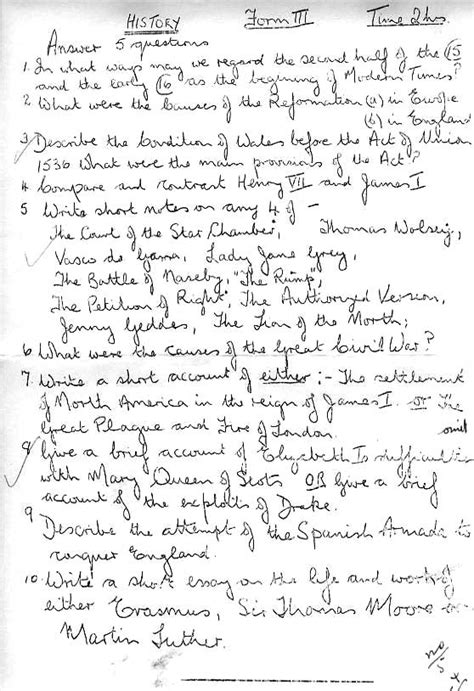 HISTORY Form III Time 2 hrs.
Answer 5 questions
1. In what ways may we regard the second half of the 15
and the early 16 as the beginning of Modern Times?
2 What were the Causes of the Reformation (a) in Europe
(b) in England
3 Describe the Condition of Wales before the Act of Union
1536 What were the main provisions of the Act?
4 Compare and contrast Henry VII and James I
5 Write short notes on any 4 of -
The Court of the Star Chamber, Thomas Wolsey,
Vasco de Gama, Lady Jane Grey,
The Battle of Naseby, "The Rump",
The Petition of Right, The Authorized Version,
Jenny Geddes, The Lion of the North;
6 What were the causes of the Great Civil War?
7. Write a short account of either :- The settlement
of North America in the reign of James I or The
Great Plague and Fire of London. omit
8 Give a brief account of Elizabeth I's difficulties
with Mary Queen of Scots OR Give a brief
account of the exploits of Drake.
9 Describe the attempt of the Spanish Armada to
conquer England.
10. Write a short essay on the life and work of
either Erasmus, Sir Thomas Moore or
Martin Luther.